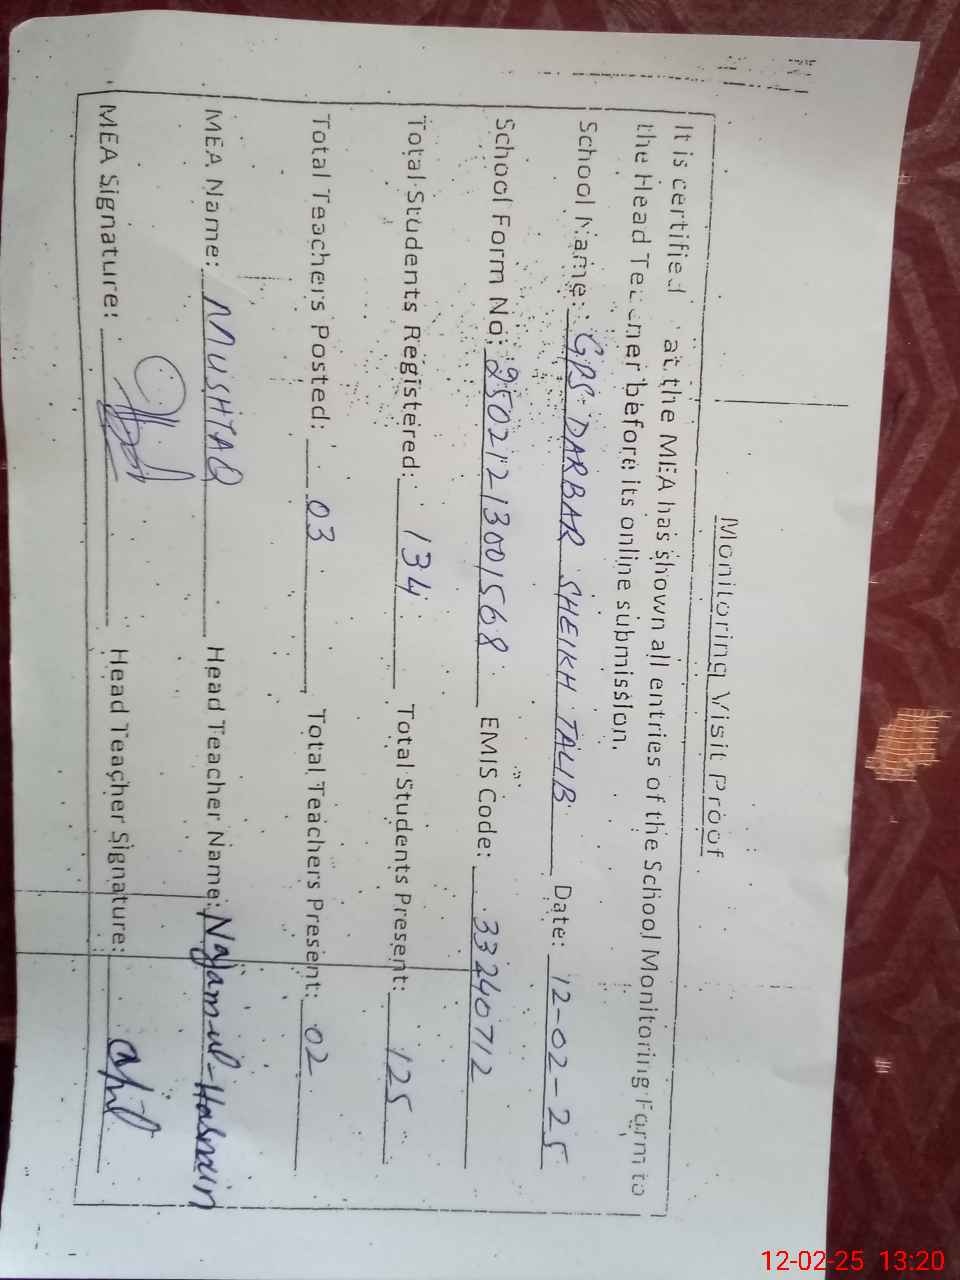 Monitoring Visit Proof
It is certified at the MEA has shown all entries of the School Monitoring Form to
the Head Teacher before its online submission.
School Name: GPS DARBAR SHEIKH TALIB Date: 12-02-25
School Form No: 25021213001568 EMIS Code: 33240712
Total Students Registered: 134 Total Students Present: 125
Total Teachers Posted: 03 Total Teachers Present: 02
MEA Name: MUSHTAQ Head Teacher Name: Najam-ul-Hasnain
MEA Signature: Head Teacher Signature:
12-02-25 13:20